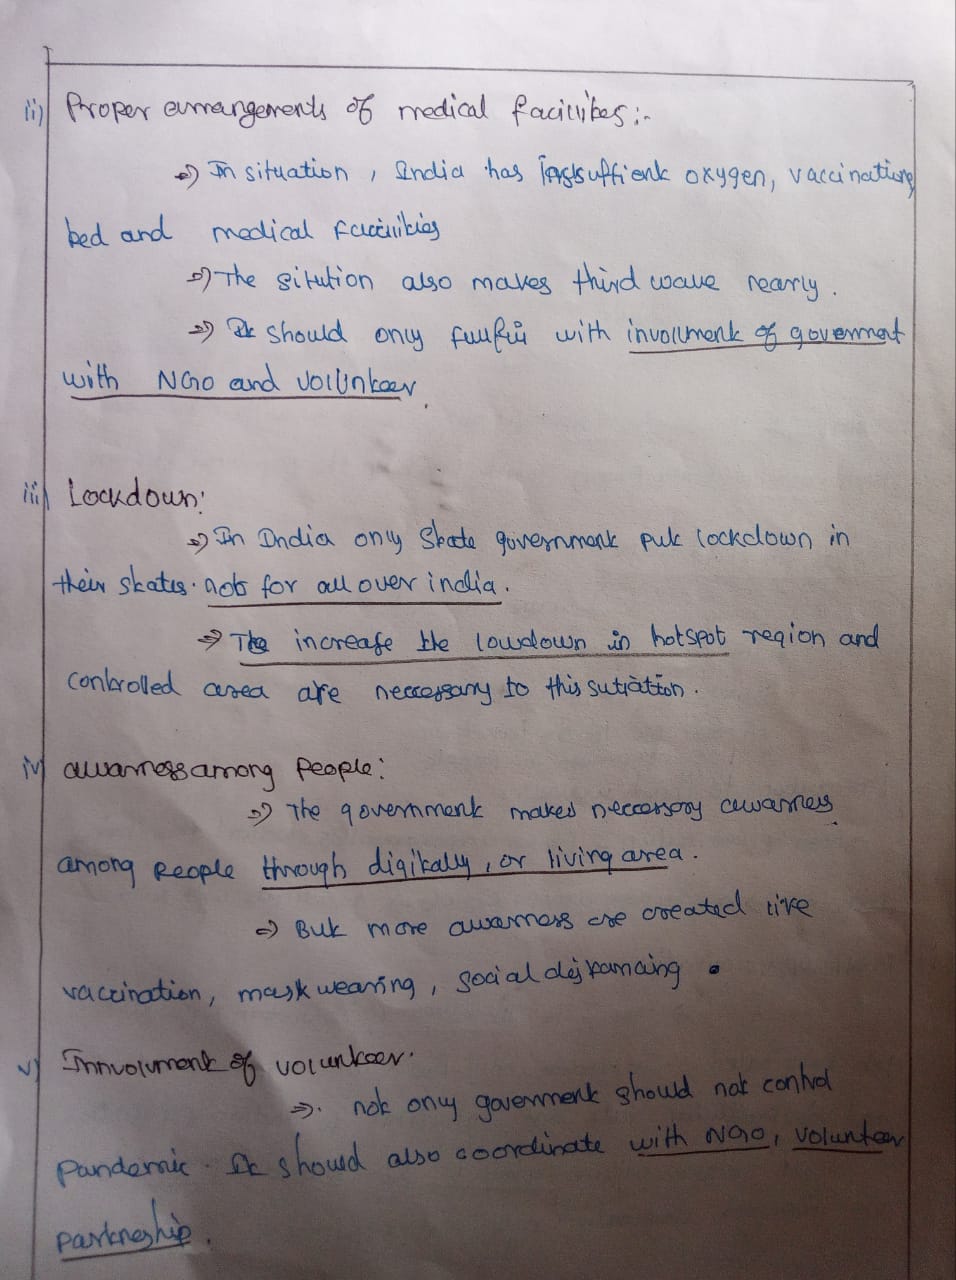 ii) Proper arrangements of medical facilities:-
=> In situation, India has insuffient oxygen, vaccinating
bed and medical facilities
=> The sitution also makes third wave nearly.
=> It should only fulfil with involument of goverment
with NGO and volunteer.
iii) Lockdown:
=> In India only State government put lockdown in
their states. not for all over india.
=> The increase the lowdown in hotspot region and
controlled area are neccessary to this sutiation.
iv) awarness among people:
=> The government makes neccessory awarness
among people through digitally, or living area.
=> But more awarness are created like
vaccination, mask wearing, social distancing.
v) Innvolument of volunteer.
=> not only goverment should not control
pandemic. It should also coordinate with NGO, volunteer
partneship.